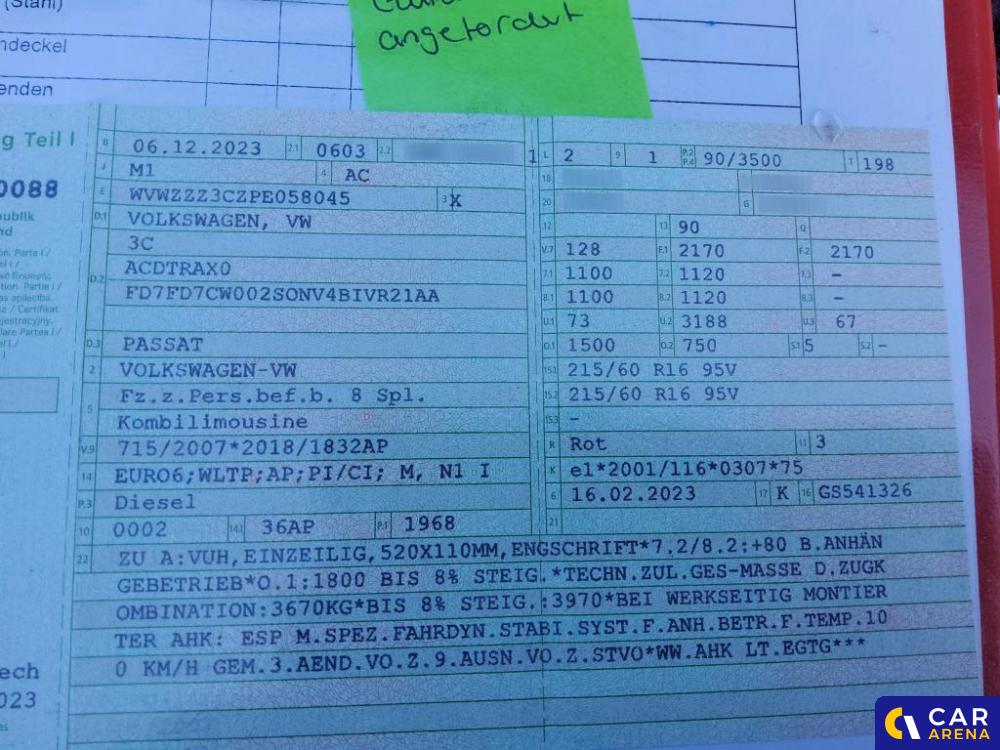 (Stahl)
ndeckel
enden
angefordert
g Teil I
0088
publik
nd
B 06.12.2023 2.1 0603 2.2
J M1 4 AC
E WVWZZZ3CZPE058045 3 X
D.1 VOLKSWAGEN, VW
3C
D.2 ACDTRAX0
FD7FD7CW002SONV4BIVR21AA
D.3 PASSAT
2 VOLKSWAGEN-VW
5 Fz.z.Pers.bef.b. 8 Spl.
Kombilimousine
V.9 715/2007*2018/1832AP
14 EURO6;WLTP;AP;PI/CI; M, N1 I
P.3 Diesel
10 0002 14.1 36AP P.1 1968
1 L 2 9 1 P.2 P.4 90/3500 T 198
18
20 G
12 13 90 Q
V.7 128 F.1 2170 F.2 2170
7.1 1100 7.2 1120 7.3 –
8.1 1100 8.2 1120 8.3 –
U.1 73 U.2 3188 U.3 67
O.1 1500 O.2 750 S.1 5 S.2 –
15.1 215/60 R16 95V
15.2 215/60 R16 95V
15.3 –
R Rot 11 3
K e1*2001/116*0307*75
6 16.02.2023 17 K 16 GS541326
21
22 ZU A:VUH,EINZEILIG,520X110MM,ENGSCHRIFT*7.2/8.2:+80 B.ANHÄN
GEBETRIEB*O.1:1800 BIS 8% STEIG.*TECHN.ZUL.GES-MASSE D.ZUGK
OMBINATION:3670KG*BIS 8% STEIG.:3970*BEI WERKSEITIG MONTIER
TER AHK: ESP M.SPEZ.FAHRDYN.STABI.SYST.F.ANH.BETR.F.TEMP.10
0 KM/H GEM.3.AEND.VO.Z.9.AUSN.VO.Z.STVO*WW.AHK LT.EGTG***
ech
023
CAR
ARENA